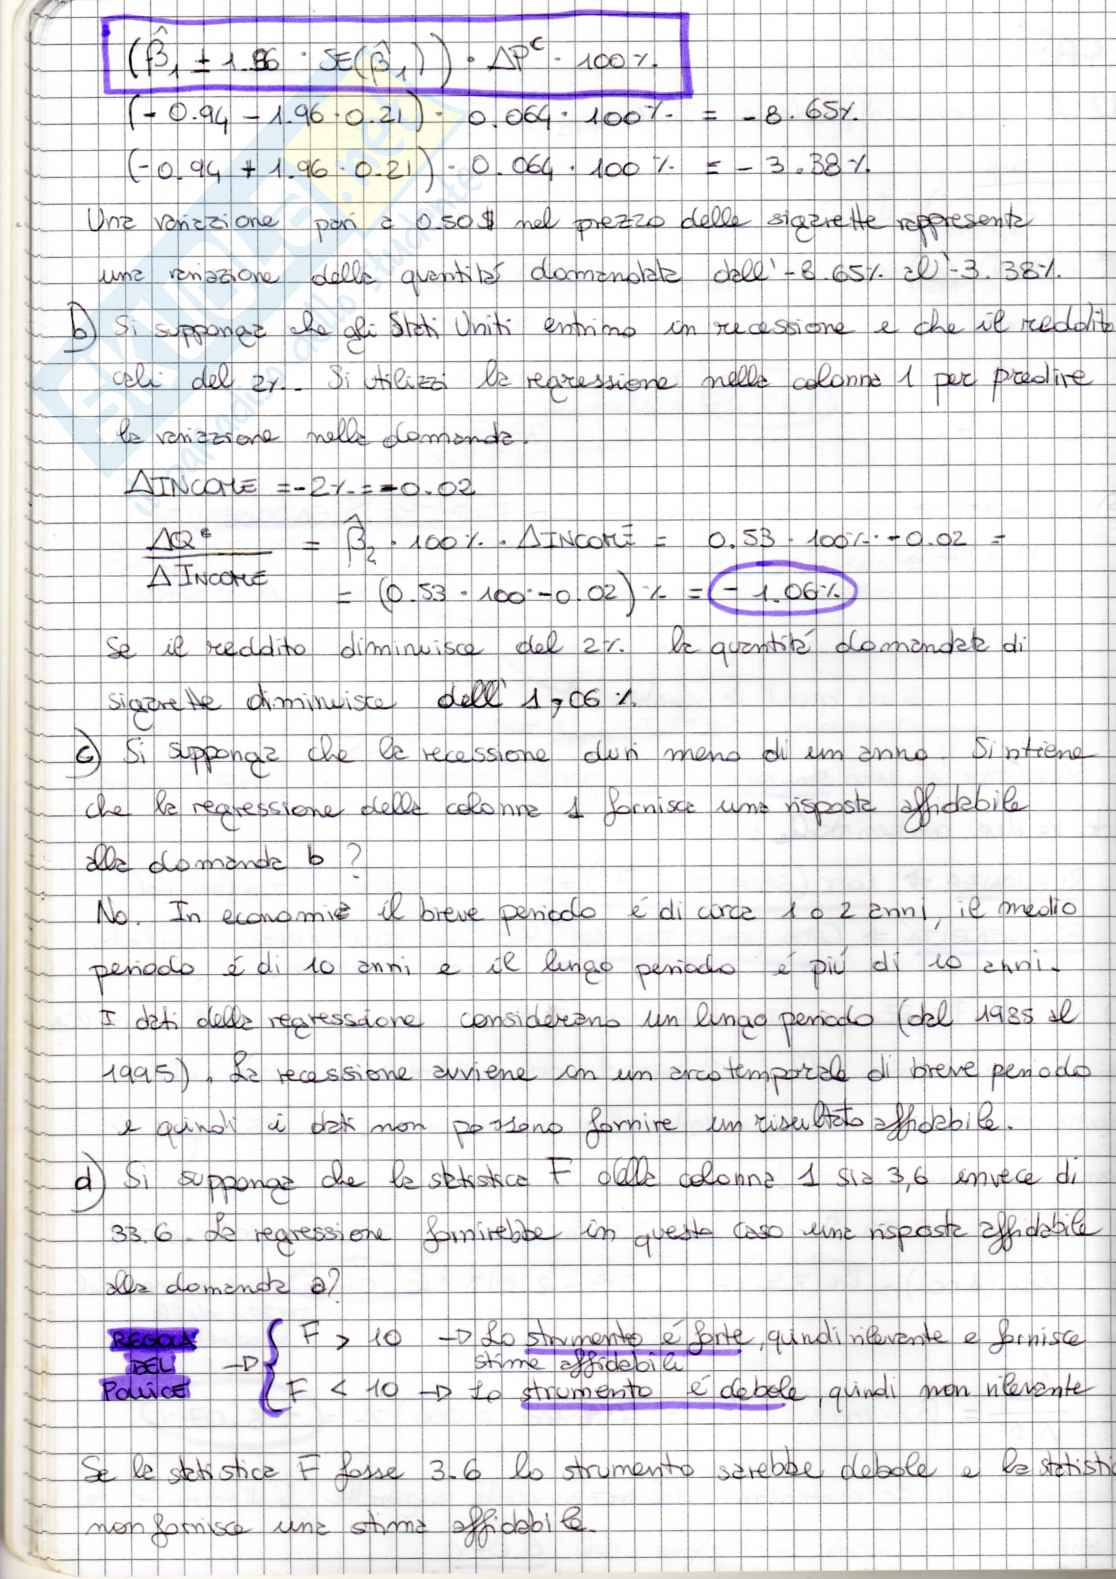 (β̂₁ ± 1.96 · SE(β̂₁)) · ΔPᶜ · 100%
(-0.94 - 1.96 · 0.21) · 0.064 · 100% = -8.65%
(-0.94 + 1.96 · 0.21) · 0.064 · 100% = -3.38%
Una variazione pari a 0.50$ nel prezzo delle sigarette rappresenta
una variazione della quantitá domandata dall'-8.65% al'-3.38%.
b) Si supponga che gli Stati Uniti entrino in recessione e che il reddito
cali del 2%. Si utilizzi la regressione nella colonna 1 per predire
la variazione nella domanda.
ΔINCOME = -2% = -0.02
ΔQᶜ / ΔINCOME = β̂₂ · 100% · ΔINCOME = 0.53 · 100% · -0.02 =
= (0.53 · 100 · -0.02)% = -1.06%
Se il reddito diminuisce del 2% la quantitá domandata di
sigarette diminuisce dell' 1,06%
c) Si supponga che la recessione duri meno di un anno. Si ritiene
che la regressione della colonna 1 fornisca una risposta affidabile
alla domanda b?
No. In economia il breve periodo é di circa 1 o 2 anni, il medio
periodo é di 10 anni e il lungo periodo é piú di 10 anni.
I dati della regressione considerano un lungo periodo (dal 1985 al
1995). La recessione avviene in un arco temporale di breve periodo
e quindi i dati non possono fornire un risultato affidabile.
d) Si supponga che la statistica F della colonna 1 sia 3,6 invece di
33.6. La regressione fornirebbe in questo caso una risposta affidabile
alla domanda a?
REGOLA DEL POLLICE
F > 10 → Lo strumento é forte, quindi rilevante e fornisce
stime affidabili
F < 10 → Lo strumento é debole, quindi non rilevante
Se la statistica F fosse 3.6 lo strumento sarebbe debole e la statisti
non fornisce una stima affidabile.